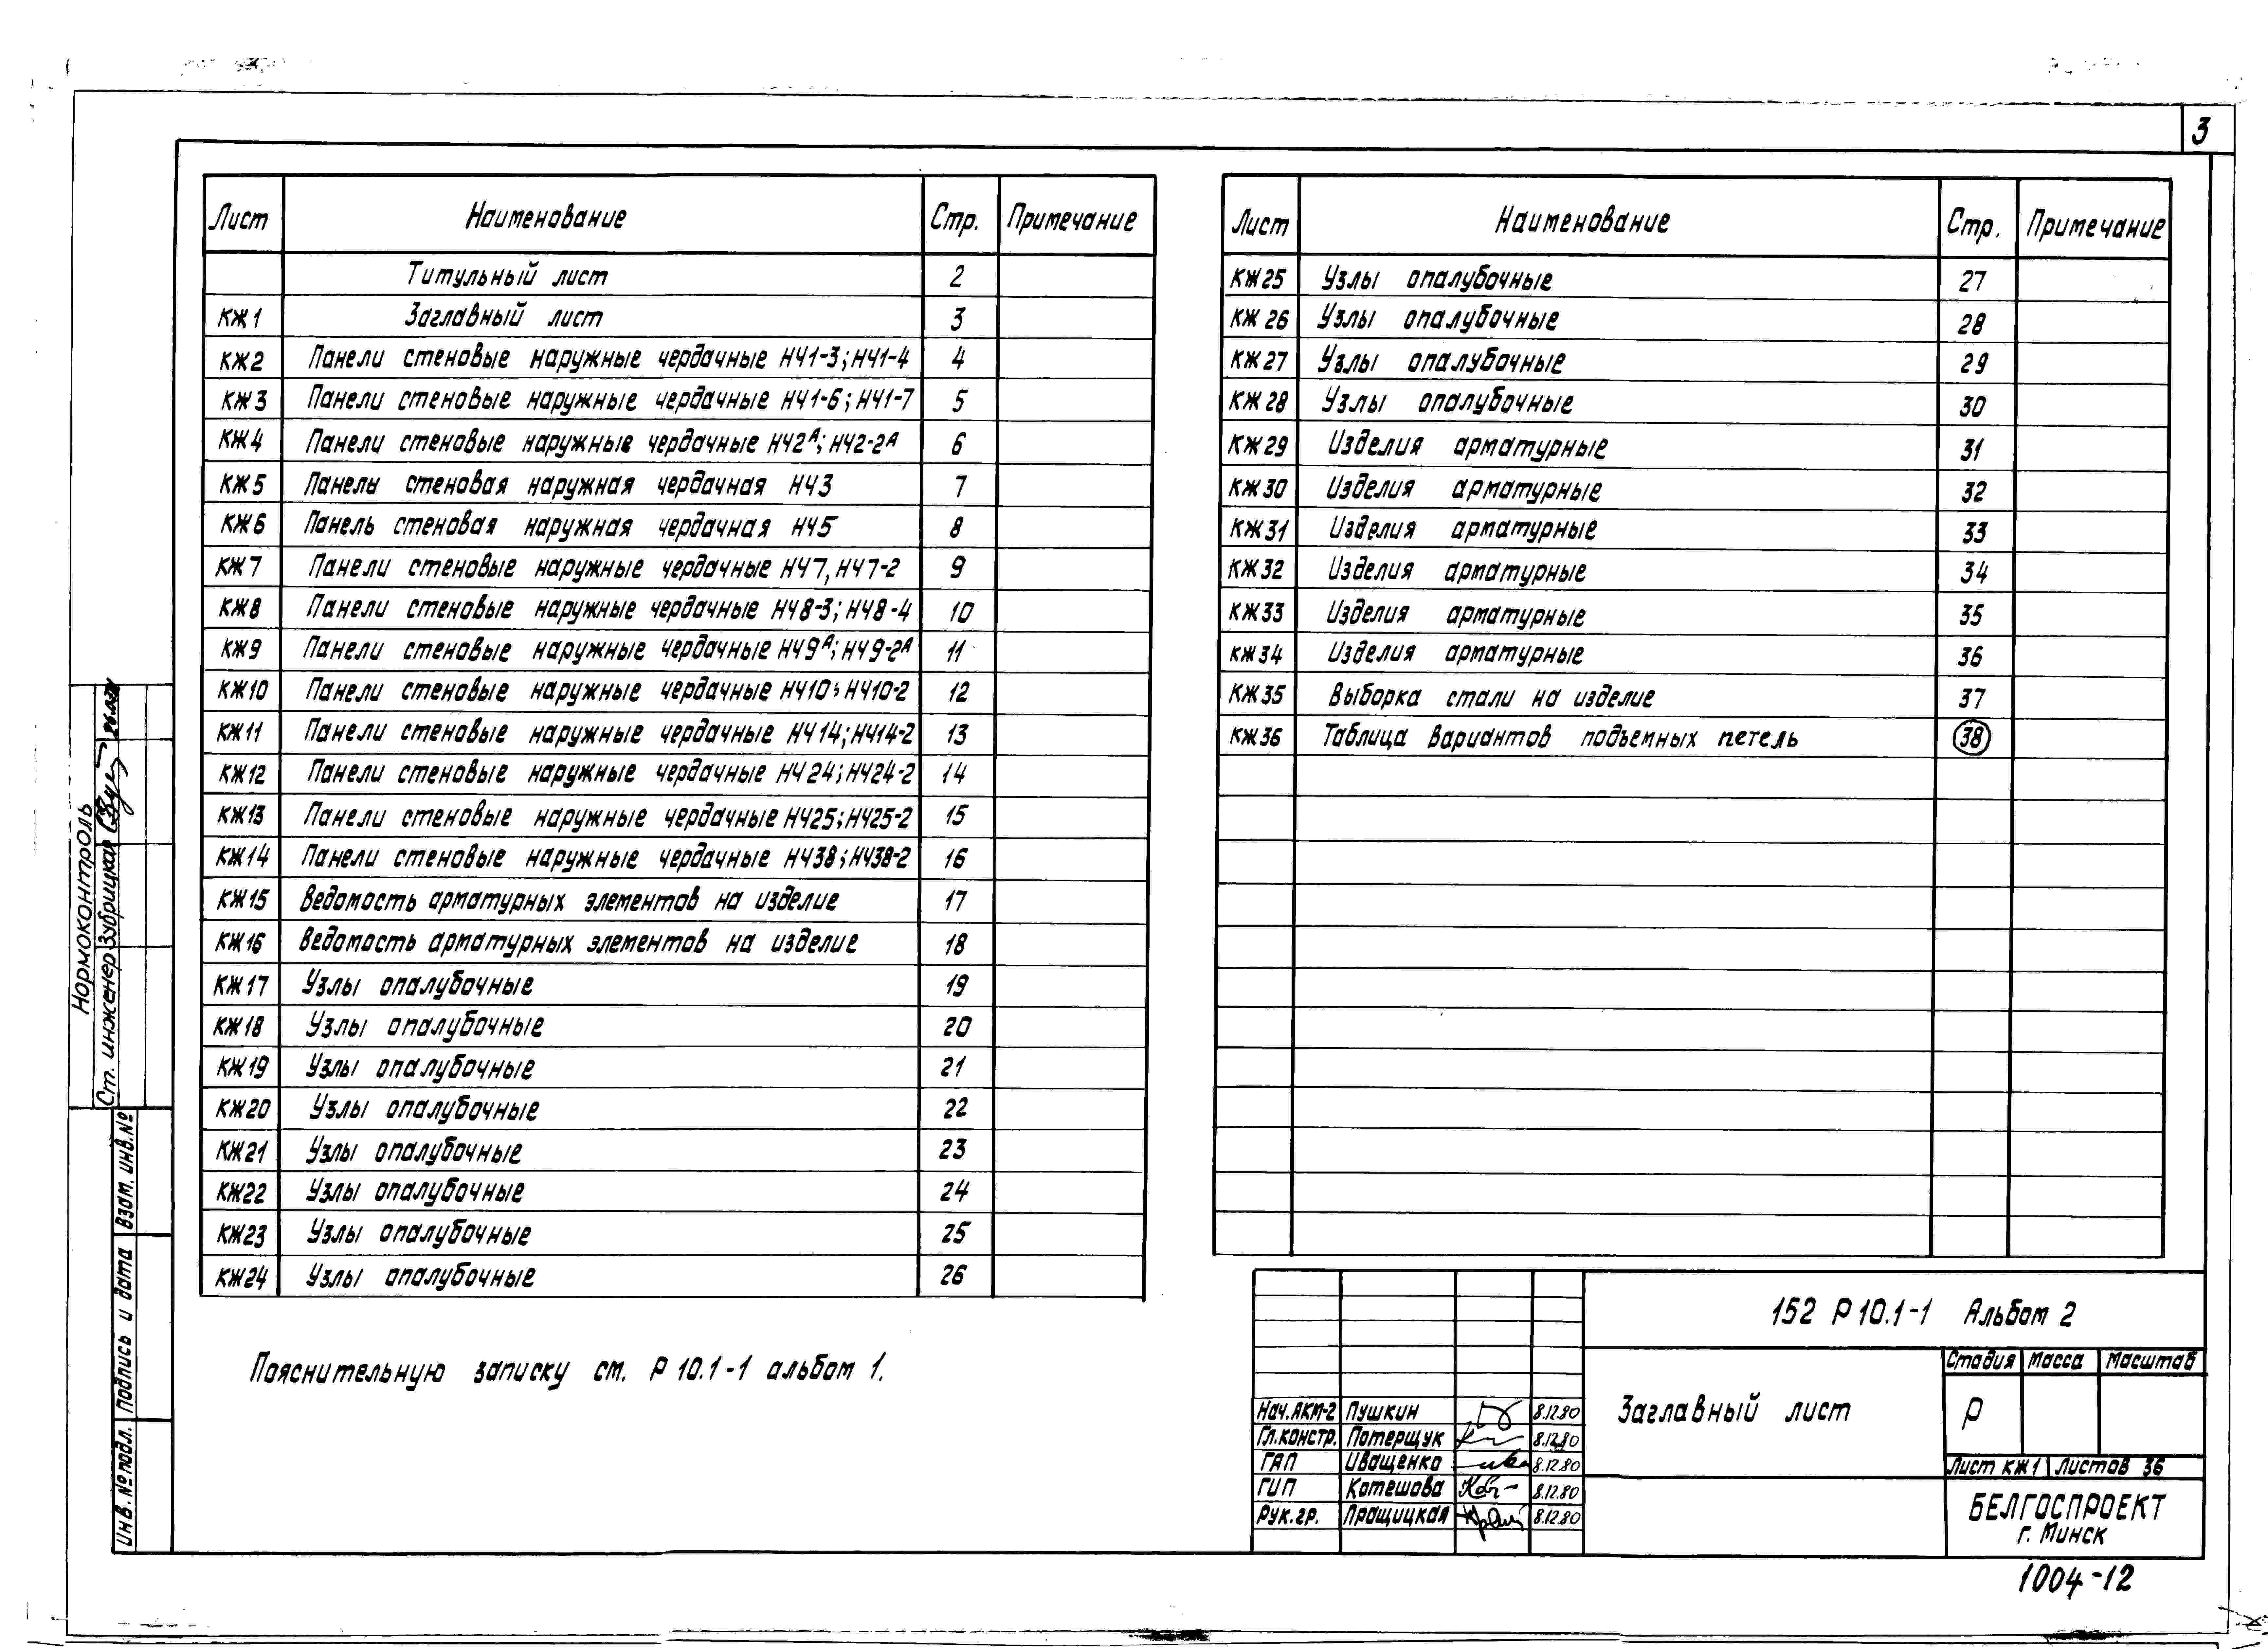 3
Лист Наименование Стр. Примечание
Титульный лист 2
КЖ1 Заглавный лист 3
КЖ2 Панели стеновые наружные чердачные НЧ1-3; НЧ1-4 4
КЖ3 Панели стеновые наружные чердачные НЧ1-6; НЧ1-7 5
КЖ4 Панели стеновые наружные чердачные НЧ2А; НЧ2-2А 6
КЖ5 Панель стеновая наружная чердачная НЧ3 7
КЖ6 Панель стеновая наружная чердачная НЧ5 8
КЖ7 Панели стеновые наружные чердачные НЧ7, НЧ7-2 9
КЖ8 Панели стеновые наружные чердачные НЧ8-3; НЧ8-4 10
КЖ9 Панели стеновые наружные чердачные НЧ9А; НЧ9-2А 11
КЖ10 Панели стеновые наружные чердачные НЧ10; НЧ10-2 12
КЖ11 Панели стеновые наружные чердачные НЧ14; НЧ14-2 13
КЖ12 Панели стеновые наружные чердачные НЧ24; НЧ24-2 14
КЖ13 Панели стеновые наружные чердачные НЧ25; НЧ25-2 15
КЖ14 Панели стеновые наружные чердачные НЧ38; НЧ38-2 16
КЖ15 Ведомость арматурных элементов на изделие 17
КЖ16 Ведомость арматурных элементов на изделие 18
КЖ17 Узлы опалубочные 19
КЖ18 Узлы опалубочные 20
КЖ19 Узлы опалубочные 21
КЖ20 Узлы опалубочные 22
КЖ21 Узлы опалубочные 23
КЖ22 Узлы опалубочные 24
КЖ23 Узлы опалубочные 25
КЖ24 Узлы опалубочные 26
Пояснительную записку см. Р 10.1-1 альбом 1.
Лист Наименование Стр. Примечание
КЖ25 Узлы опалубочные 27
КЖ26 Узлы опалубочные 28
КЖ27 Узлы опалубочные 29
КЖ28 Узлы опалубочные 30
КЖ29 Изделия арматурные 31
КЖ30 Изделия арматурные 32
КЖ31 Изделия арматурные 33
КЖ32 Изделия арматурные 34
КЖ33 Изделия арматурные 35
КЖ34 Изделия арматурные 36
КЖ35 Выборка стали на изделие 37
КЖ36 Таблица вариантов подъемных петель 38
152 Р 10.1-1 Альбом 2
Заглавный лист
Стадия Масса Масштаб
Р
Лист КЖ1 Листов 36
БЕЛГОСПРОЕКТ
г. Минск
Нач.АКМ-2 Пушкин 8.12.80
Гл.констр. Потерщук 8.12.80
ГАП Иващенко 8.12.80
ГИП Котешова 8.12.80
Рук.гр. Пращицкая 8.12.80
1004-12
Нормоконтроль
Ст. инженер Зубрицкая
Взам. инв.№
Подпись и дата
Инв. № подл.